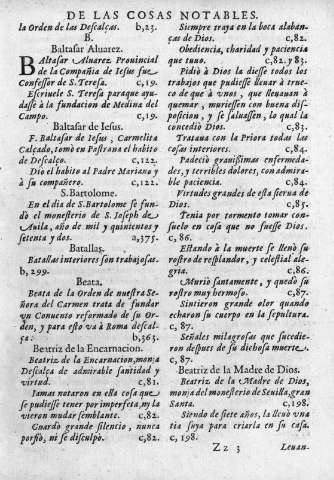 DE LAS COSAS NOTABLES.
la Orden de las Descalças. b,23.
B.
Baltasar Aluarez.
BAltasar Aluarez Prouincial
de la Compañia de Iesus fue
Confessor de S. Teresa. c,19.
Escriuele S. Teresa paraque ayu-
dasse à la fundacion de Medina del
Campo. c,19.
Baltasar de Iesus.
F. Baltasar de Iesus, Carmelita
Calçado, tomò en Pastrana el habito
de Descalço. c,122.
Diò el habito al Padre Mariano y
à su compañero. c,122.
S.Bartolome.
En el dia de S.Bartolome se fun-
dò el monesterio de S. Ioseph de
Auila, año de mil y quinientos y
setenta y dos. a,375.
Batallas.
Batallas interiores son trabajosas.
b, 299.
Beata.
Beata de la Orden de nuestra Se-
ñora del Carmen trata de fundar
vn Conuento reformado de su Or-
den, y para esto và à Roma descal-
ça: b,363.
Beatriz de la Encarnacion.
Beatriz de la Encarnacion,monja
Descalça de admirable santidad y
virtud. c,81.
Iamas notaron en ella cosa que
se pudiesse tener por imperfeta,ni la
vieron mudar semblante. c,82.
Guardò grande silencio, nunca
porfiò, ni se disculpò. c,82.
Siempre traya en la boca alaban-
ças de Dios. c,82.
Obediencia, charidad y paciencia
que tuuo. c,82. y 83.
Pidiò à Dios la diesse todos los
trabajos que pudiesse lleuar à true-
co de que à vnos, que lleuauan à
quemar, muriessen con buena dis-
posicion, y se saluassen, lo qual la
concediò Dios. c,83.
Trataua con la Priora todas las
cosas interiores. c,84.
Padeciò grauissimas enfermeda-
des, y terribles dolores, con admira-
ble paciencia. c,84.
Virtudes grandes de esta sierua de
Dios. c,85.
Tenia por tormento tomar con-
suelo en cosa que no fuesse Dios.
c, 86.
Estando à la muerte se llenò su
rostro de resplandor, y celestial ale-
gria. c,86.
Muriò santamente, y quedò su
rostro muy hermoso. c,87.
Sintieron grande olor quando
echaron su cuerpo en la sepultura.
c, 87.
Señales milagrosas que sucedie-
ron despues de su dichosa muerte.
c, 87.
Beatriz de la Madre de Dios.
Beatriz de la Madre de Dios,
monja del monesterio de Seuilla,gran
Santa. c,198.
Siendo de siete años, la lleuò vna
tia suya para criarla en su casa.
c, 198.
Zz 3 Leuan.